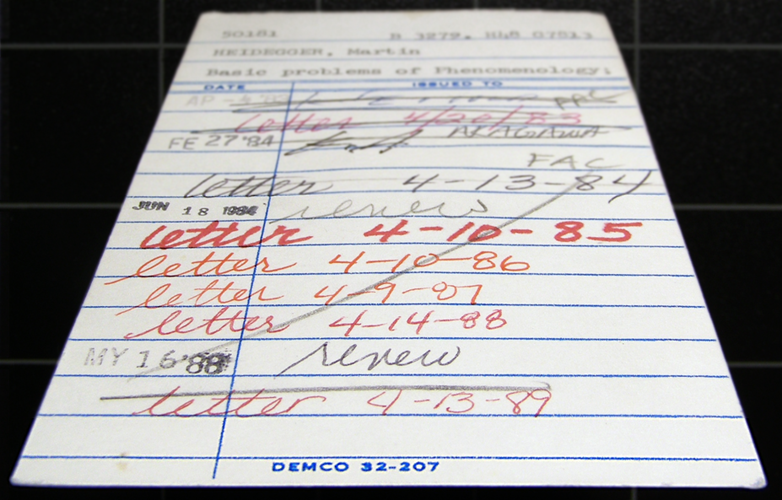 50181 B 3279. H48 G7813
HEIDEGGER, Martin
Basic problems of Phenomenology;
DATE ISSUED TO
AP
letter 4/26/83
FE 27 '84 AKAGAWA
FAC
letter 4-13-84
JUN 18 1984 renew
letter 4-10-85
letter 4-10-86
letter 4-9-87
letter 4-14-88
MY 16 '88 renew
letter 4-13-89
DEMCO 32-207